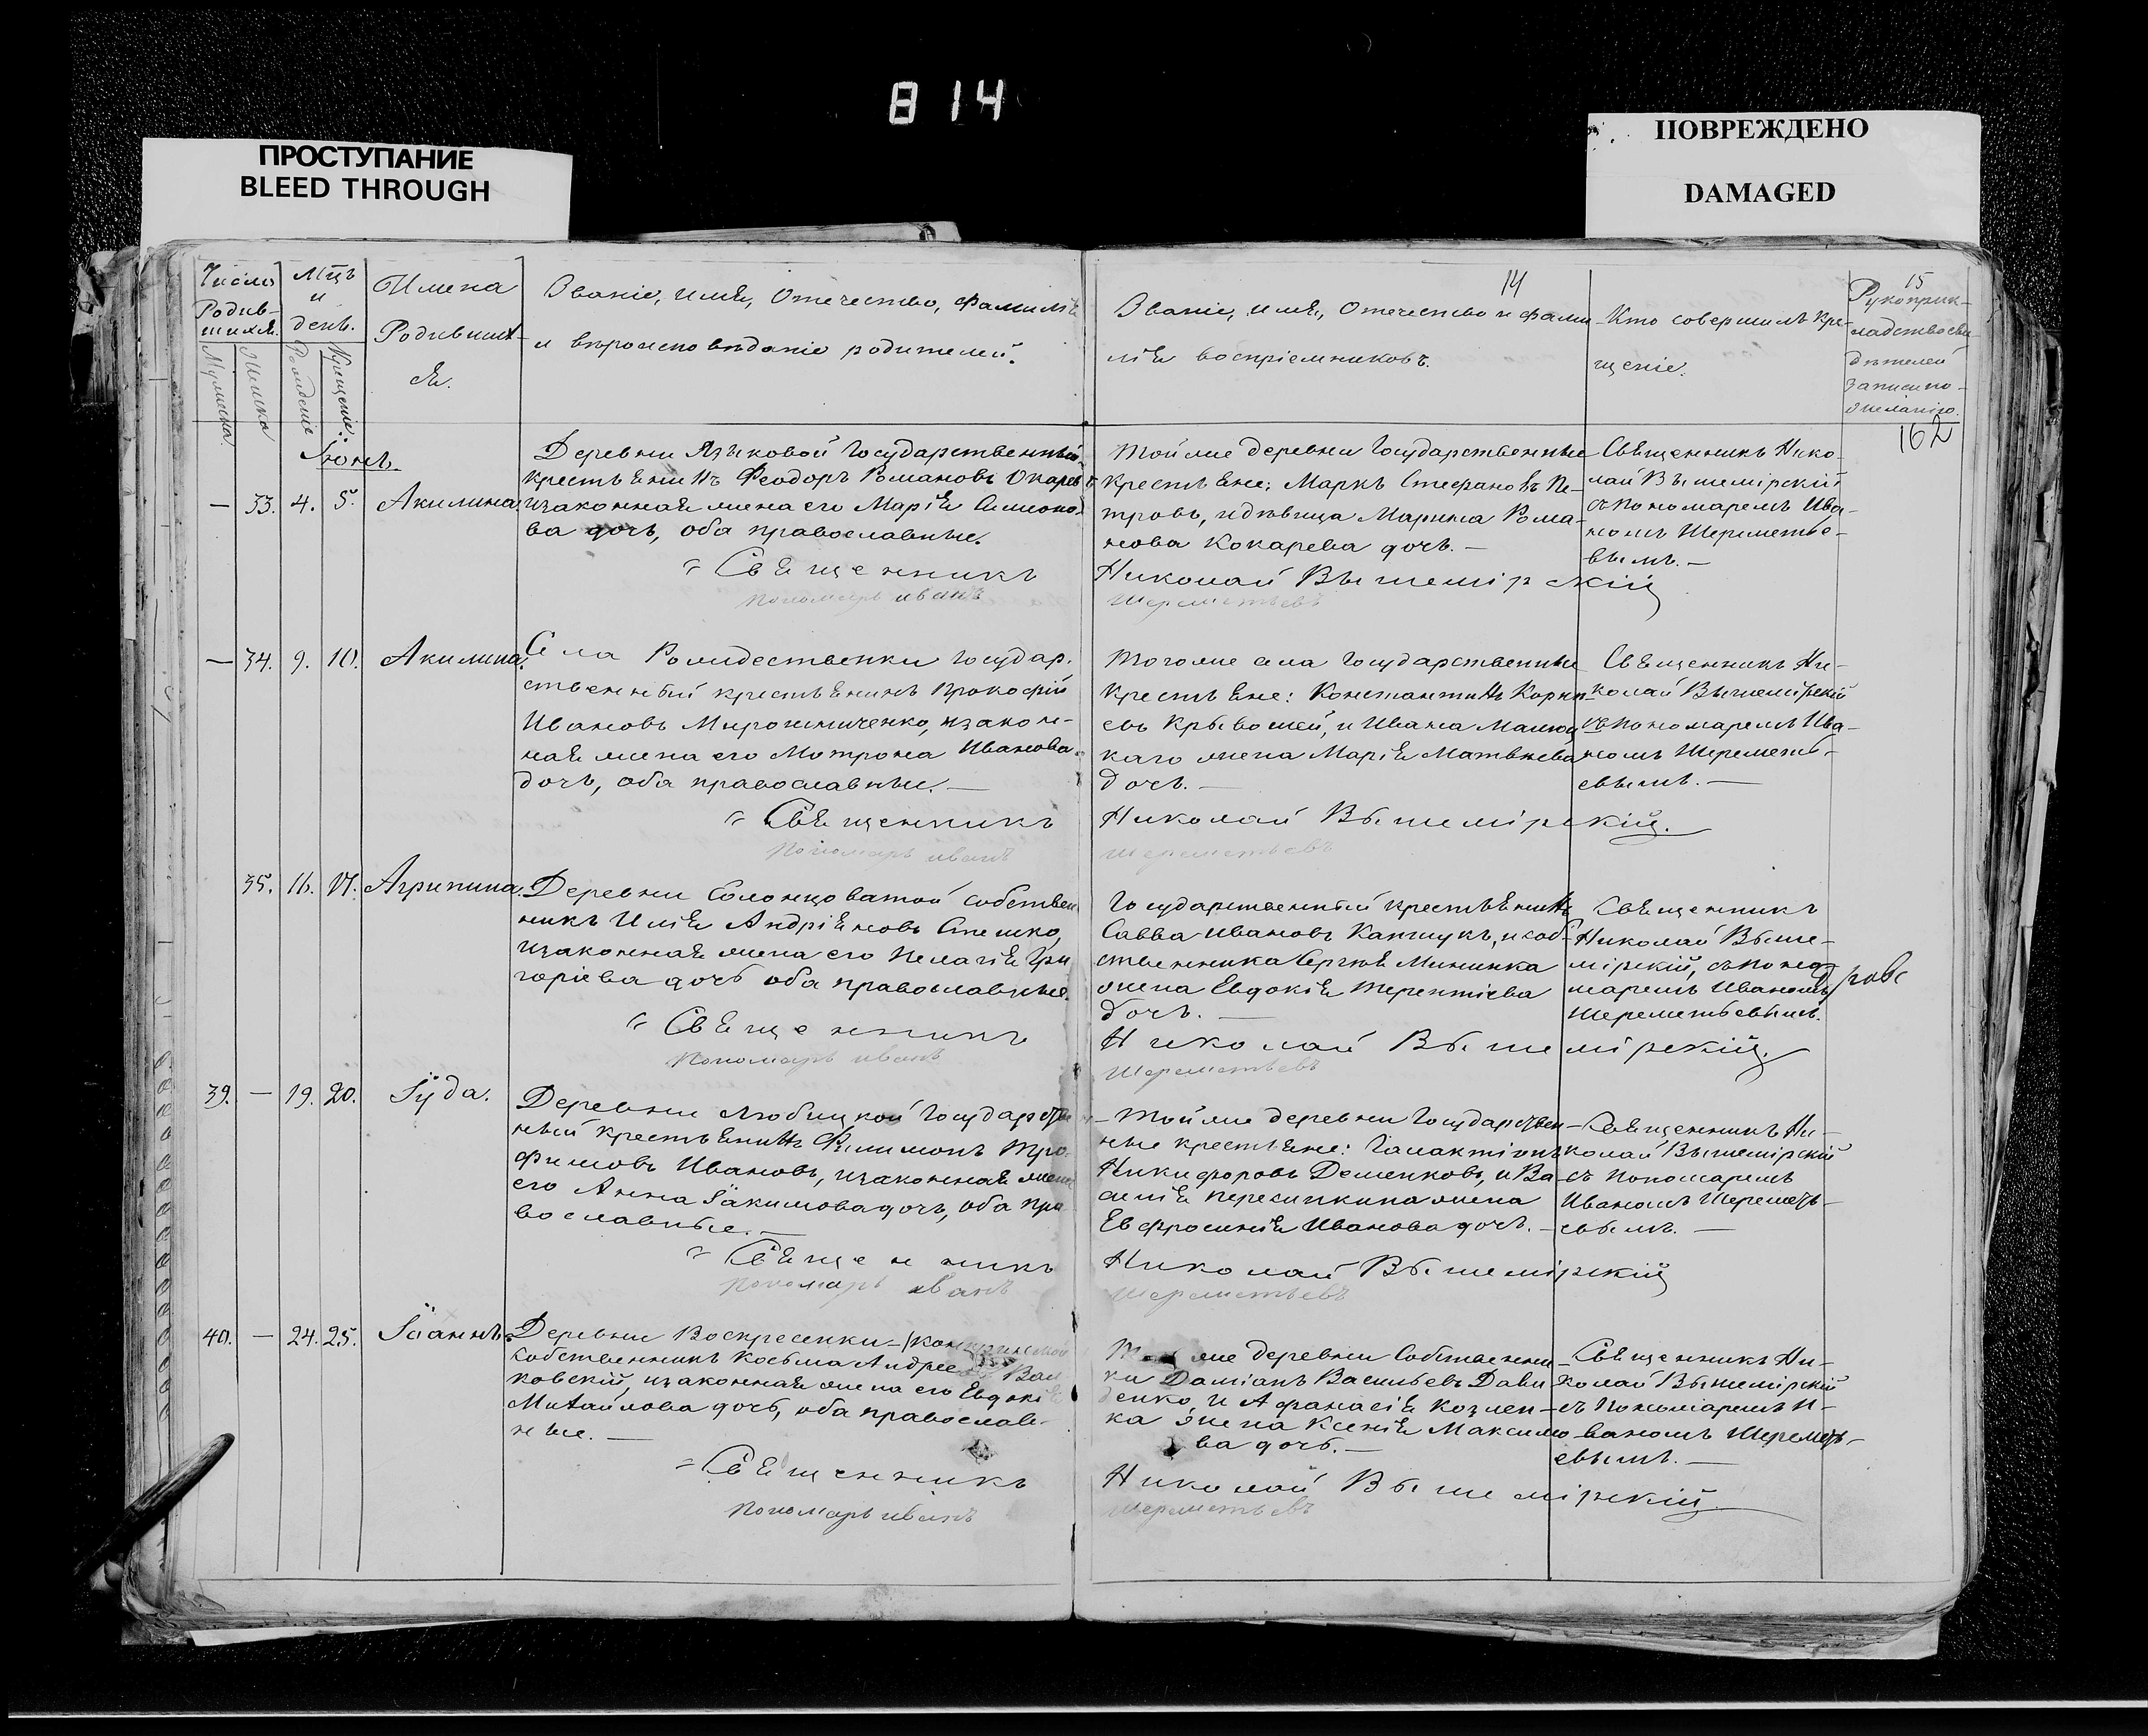 814
ПРОСТУПАНИЕ
BLEED THROUGH
ПОВРЕЖДЕНО
DAMAGED
Число
Родив-
шихся.
Мужеска.
Женска
Мцъ
и
день.
Рожденіе
Крещеніе.
Имена
Родивших-
ся.
Званіе, имя, Отечество, фамилія
и вѣроисповѣданіе родителей.
14
Званіе, имя, Отечество и фами-
лія воспріемниковъ.
Кто совершилъ кре-
щеніе.
15
Рукоприк-
ладство сви-
дѣтелей
записи по-
желанію.
162
Іюнь.
— 33. 4. 5. Акилина
Деревни Языковой Государственный
крестьянинъ Феодоръ Романовъ
изаконная жена его Марія Симоно-
ва дочь, оба православные.
Священникъ
пономарь иванъ
Тойже деревни Государственные
Крестьяне: Маркъ Стефановъ Пе-
тровъ, идѣвица Марина Рома-
нова Кокарева дочь. —
Николай Вышемірскій
Шереметьевъ
Священникъ Нико-
лай Вышемірскій
съ Пономаремъ Ива-
номъ Шереметье-
вымъ. —
— 34. 9. 10. Акилина.
Села Рождественки Государ-
ственный крестьянинъ Прокофій
Ивановъ Мирошниченко, изакон-
ная жена его Мотрона Иванова
дочь, оба православные. —
Священникъ
пономарь иванъ
Тогоже села Государственные
Крестьяне: Константинъ Корни-
евъ Кривошей, и Ивана
каго жена Марія Матвѣева
дочь. —
Николай Вышемірскій.
Шереметьевъ
Священникъ Ни-
колай Вышемірскій
съ Пономаремъ Ива-
номъ Шереметь-
евымъ. —
35. 16. 17. Агрипина.
Деревни Солонцоватой собствен
никъ Илія Андріяновъ Стешко,
изаконная жена его Пелагія Гри
горіева дочь оба православные.
Священникъ
Пономарь иванъ
Государственный крестьянинъ
Савва Ивановъ Капшукъ, исоб-
ственника Сергія Мининка
жена Евдокія Терентіева
дочь. —
Николай Вышемірскій.
Шереметьевъ
Священникъ
Николай Выше-
мірскій, съ Поно-
маремъ Иваномъ
Шереметьевымъ.
39. — 19. 20. Іуда.
Деревни Любицкой Государстве
ный крестьянинъ Филимонъ Тро-
фимовъ Ивановъ, изаконная жена
его Анна Іакимова дочь, оба пра
вославные. —
Священникъ
пономарь иванъ
Тойже деревни Государствен-
ные крестьяне: Галактіонъ
Никифоровъ Деменковъ, и Ва-
силія Пересипкина жена
Евфросинія Иванова дочь. —
Николай Вышемірскій
Шереметьевъ
Священникъ Ни-
колай Вышемірскій
съ Пономаремъ
Иваномъ Шереметь-
евымъ. —
40. — 24. 25. Іоаннъ.
Деревни Воскресенки
собственникъ Косьма
ковскій, изаконная жена его Евдокія
Михайлова дочь, оба православ-
ные. —
Священникъ
Пономарь иванъ
же деревни Собственни-
ки Даміанъ Васильевъ Дави
денко, и Афанасія Козлен-
ка жена Ксенія Максимо
ва дочь. —
Николай Вышемірскій
Шереметьевъ
Священникъ Ни-
колай Вышемірскій
съ Пономаремъ И-
ваномъ Шереметь-
евымъ. —